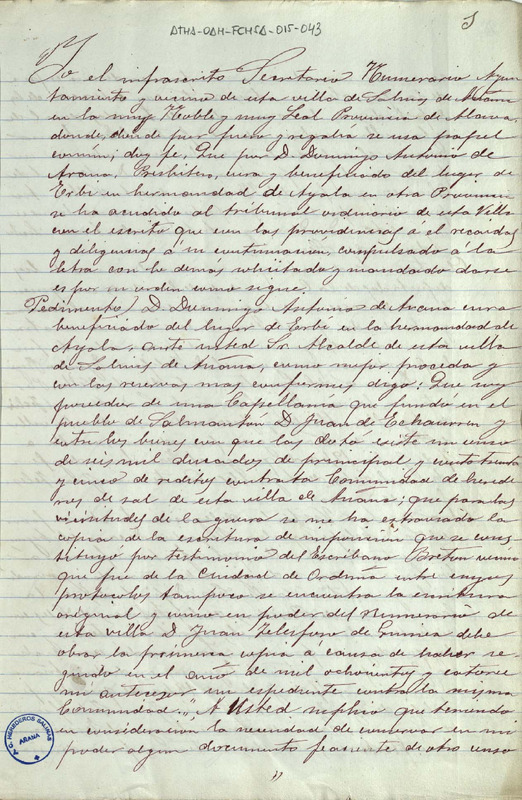 ATHA-DAH-FCHSA-015-043
1
Yo el infrascrito Secretario Numerario Ayun
tamiento y vecino de esta villa de Salinas de Añana
en la muy Noble y muy Leal Provincia de Alava,
donde, de por fuero y regalia se usa papel
comun, doy fe, Que por D. Domingo Antonio de
Arana, Presbitero, cura y beneficiado del lugar de
Erbi en hermandad de Ayala en otra Provincia
se ha acudido al tribunal ordinario de esta Villa
con el escrito que con las providencias a el recordas
y diligencias á su continuacion, compulsado á la
letra con lo demás solicitado y mandado darse
es por su orden como sigue.
Pedimento) D. Domingo Antonio de Arana cura
beneficiado del lugar de Erbi en la hermandad de
Ayala, ante usted Sr. Alcalde de esta villa
de Salinas de Añana, como mejor proceda y
con las reservas mas conformes digo: Que soy
poseedor de una Capellanía que fundó en el
pueblo de Salmantón D. Juan de Echaurren y
entre los bienes con que las doto existe un censo
de seis mil ducados de principal y ciento treinta
y cinco de reditos contra la Comunidad de herede
ros de sal de esta villa de Añana; que para las
vicisitudes de la guerra se me ha extraviado la
copia de la escritura de imposicion que se cons
tituyo por testimonio del Escribano Breton vecino
que fue de la Ciudad de Orduña entre cuyos
protocolos tampoco se encuentra la escritura
original y como en poder del Numerario de
esta villa D. Juan Telesforo de Guinea debe
obrar la primera copia a causa de haber se
guido en el año de mil ochocientos y catorce
mi antecesor un espediente contra la misma
Comunidad.,, A Usted suplico que teniendo
en consideracion la necesidad de conservar en mi
poder algun documento feaciente de otro censo
A.C. HEREDEROS SALINAS
AÑANA